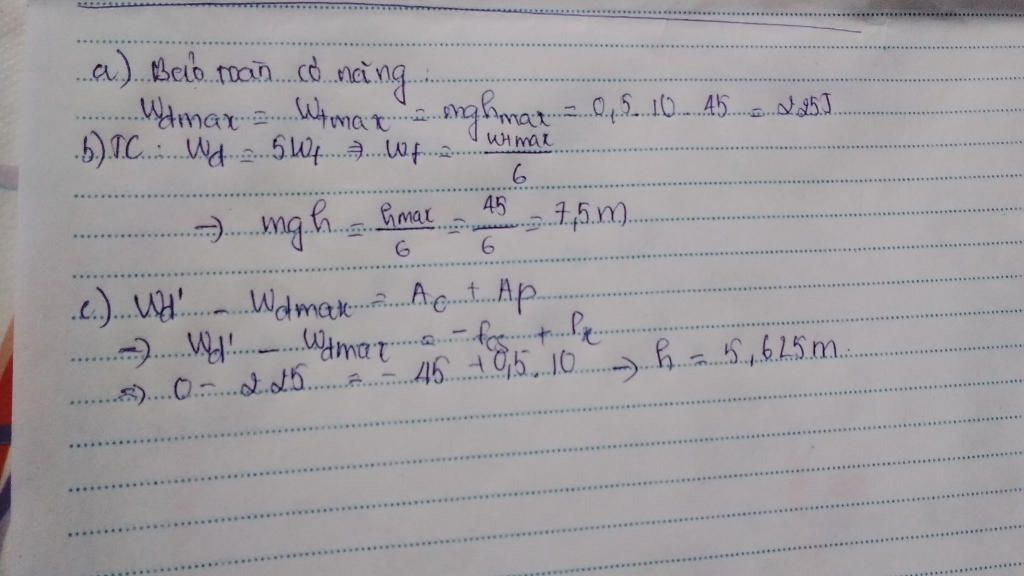 a) Bảo toàn cơ năng :
Wđmax = Wtmax = mghmax = 0,5. 10. 45 = 225J
b) TC : Wđ = 5Wt ⇒ Wt = Wtmax / 6
→ mgh = hmax / 6 = 45 / 6 = 7,5m
c) Wđ' - Wđmax = Ac + Ap
→ Wđ' - Wđmax = - fcs + Px
⇒ 0 - 225 = - 45 + 0,5. 10 → h = 5,625m.